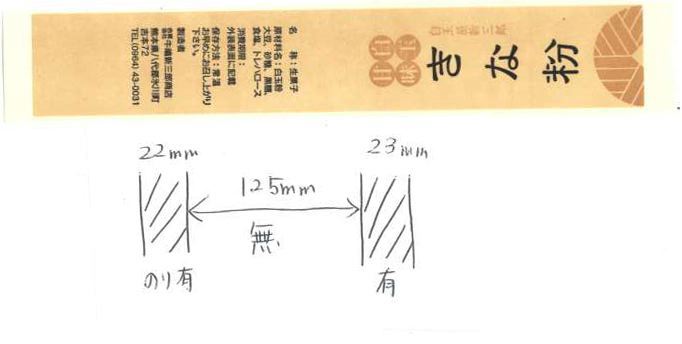 きな粉
白玉屋新三郎
甘
味
白
玉
名　称：生菓子
原材料名：白玉粉、
大豆、砂糖、黒糖、
食塩、トレハロース
消費期限：
外装表面に記載
保存方法：常温
お早めにお召し上がり
下さい。
製造者
白玉屋新三郎商店
熊本県八代郡氷川町
吉本72
TEL(0964) 43-0031
22mm
23mm
125mm
無
のり有
有